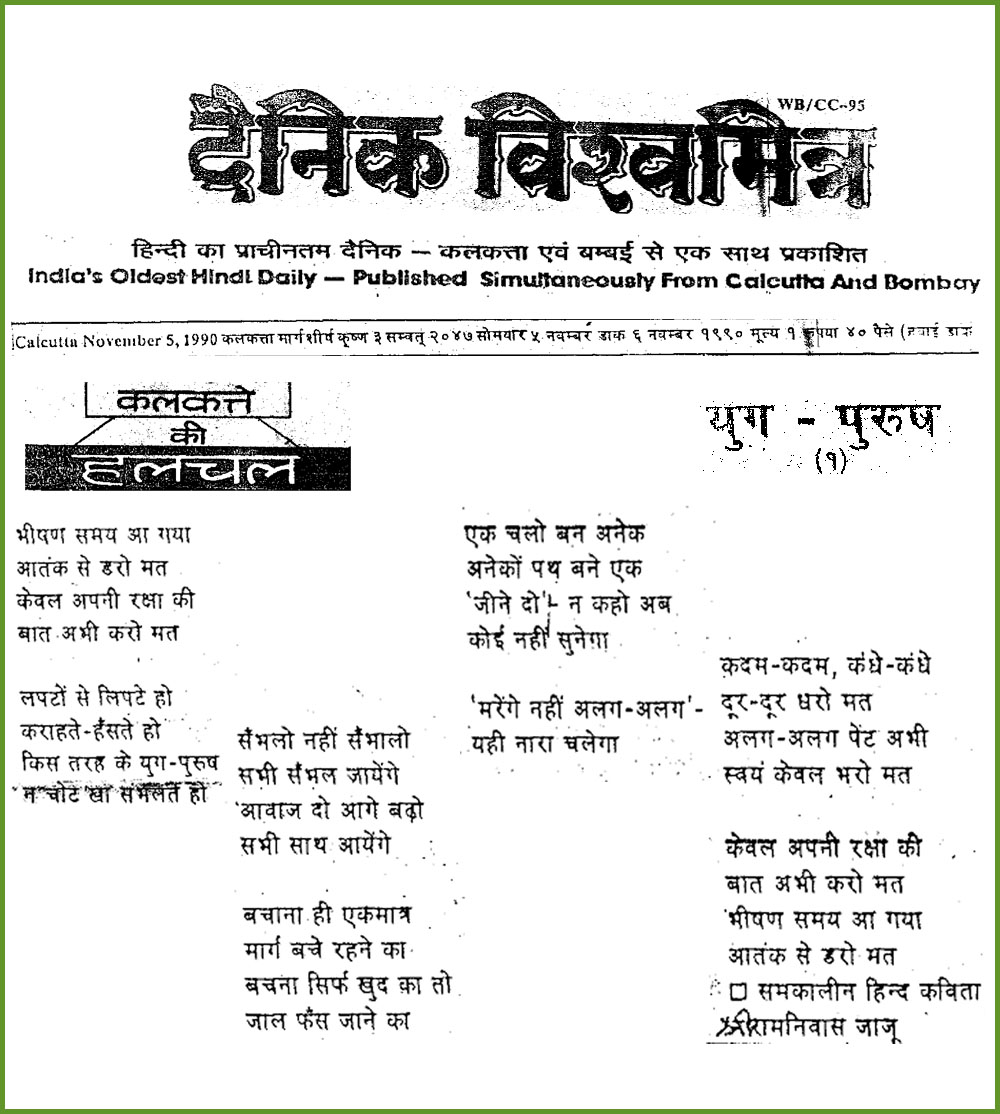 WB/CC-95
दैनिक विश्वमित्र
हिन्दी का प्राचीनतम दैनिक – कलकत्ता एवं बम्बई से एक साथ प्रकाशित
India's Oldest Hindi Daily — Published Simultaneously From Calcutta And Bombay
Calcutta November 5, 1990 कलकत्ता मार्गशीर्ष कृष्ण ३ सम्वत् २०४७ सोमवार ५ नवम्बर डाक ६ नवम्बर १९९० मूल्य १ रुपया ४० पैसे (हवाई डाक
कलकत्ते
की
हलचल
युग - पुरुष
(१)
भीषण समय आ गया
आतंक से डरो मत
केवल अपनी रक्षा की
बात अभी करो मत
लपटों से लिपटे हो
कराहते-हँसते हो
किस तरह के युग-पुरुष
न चोट खा संभलते हो
सँभलो नहीं सँभालो
सभी सँभल जायेंगे
आवाज दो आगे बढ़ो
सभी साथ आयेंगे
बचाना ही एकमात्र
मार्ग बचे रहने का
बचना सिर्फ खुद का तो
जाल फँस जाने का
एक चलो बन अनेक
अनेकों पथ बने एक
'जीने दो'- न कहो अब
कोई नहीं सुनेगा
'मरेंगे नहीं अलग-अलग'-
यही नारा चलेगा
क़दम-कदम, कंधे-कंधे
दूर-दूर धरो मत
अलग-अलग पेंट अभी
स्वयं केवल भरो मत
केवल अपनी रक्षा की
बात अभी करो मत
भीषण समय आ गया
आतंक से डरो मत
□ समकालीन हिन्द कविता
श्रीरामनिवास जाजू